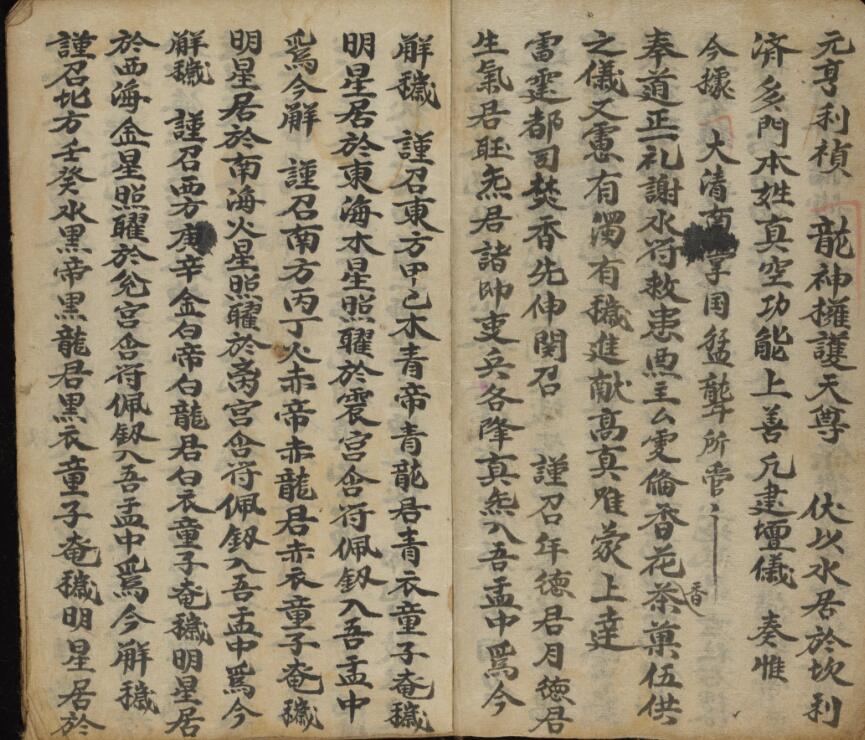 元亨利禎　龍神擁護天尊　伏以水居於坎利
済多門本姓真空功能上善凢建壇儀　奏惟
今據　大清国所管
奉道正一礼謝水符救患主公香花茶菓伍供
香
之儀又慮有濁有穢進献高真唯蒙上達
雷霆都司焚香先伸関召　謹召年徳君月徳君
生氣君旺炁君諸帥吏兵各降真炁入吾盂中為今
解穢　謹召東方甲乙木青帝青龍君青衣童子奄穢
明星居於東海木星照耀於震宮含符佩釼入吾盂中
為今解　謹召南方丙丁火赤帝赤龍君赤衣童子奄穢
明星居於南海火星照耀於离宮含符佩釼入吾盂中為今
解穢　謹召西方庚辛金白帝白龍君白衣童子奄穢明星居
於西海金星照耀於兌宮含符佩釼入吾盂中為今解穢
謹召北方壬癸水黒帝黒龍君黒衣童子奄穢明星居於